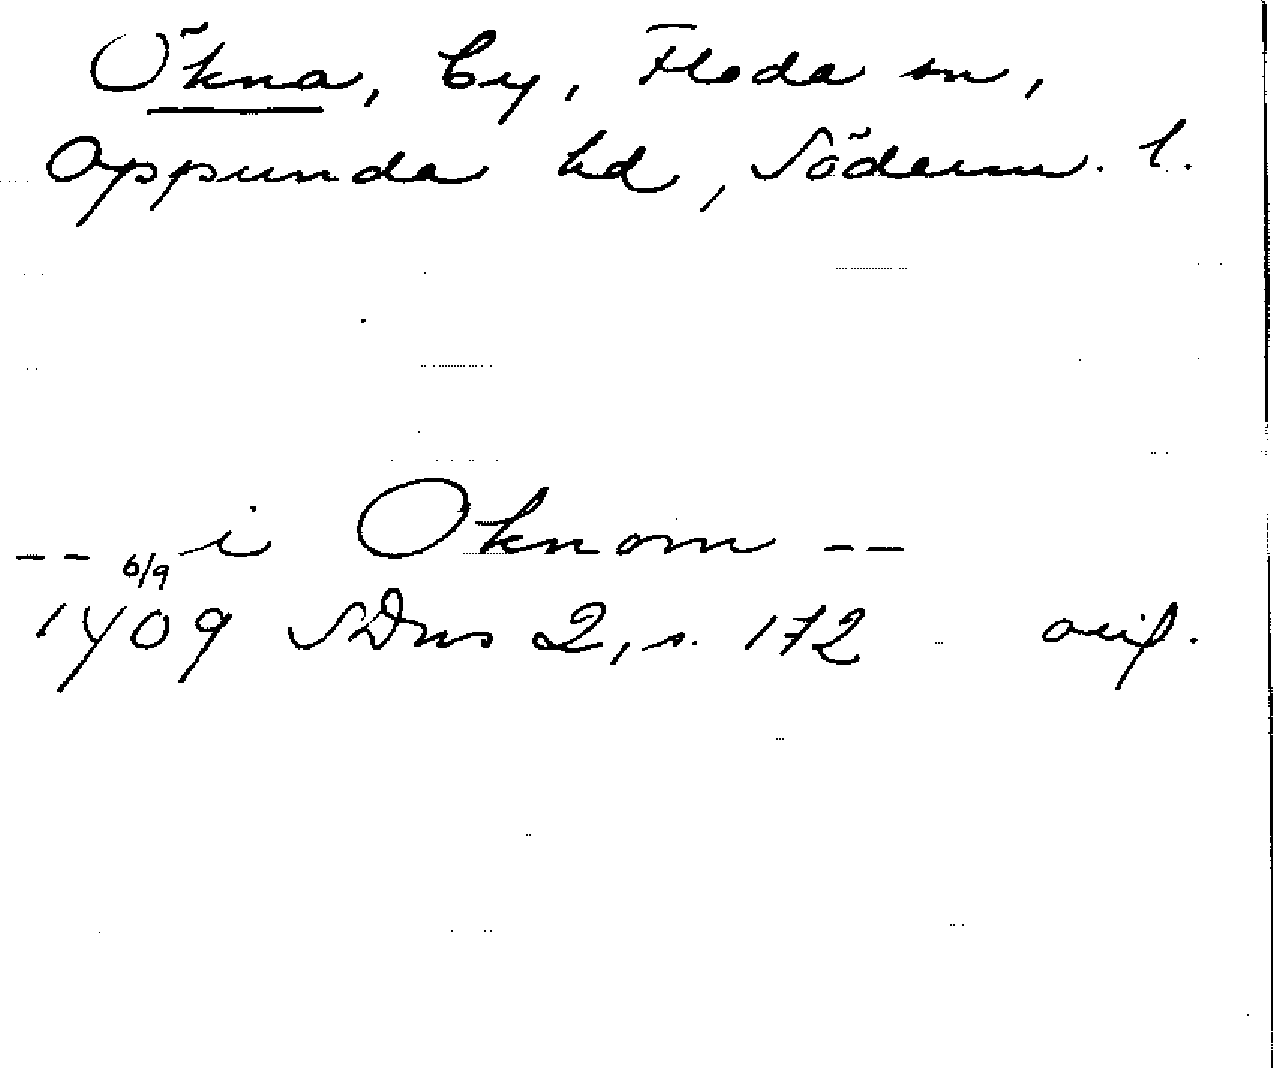 Ökna, by, Floda sn,
Oppunda hd, Söderm. l.
-- i Oknom --
6/9
1409 SDns 2, s. 172 orig.